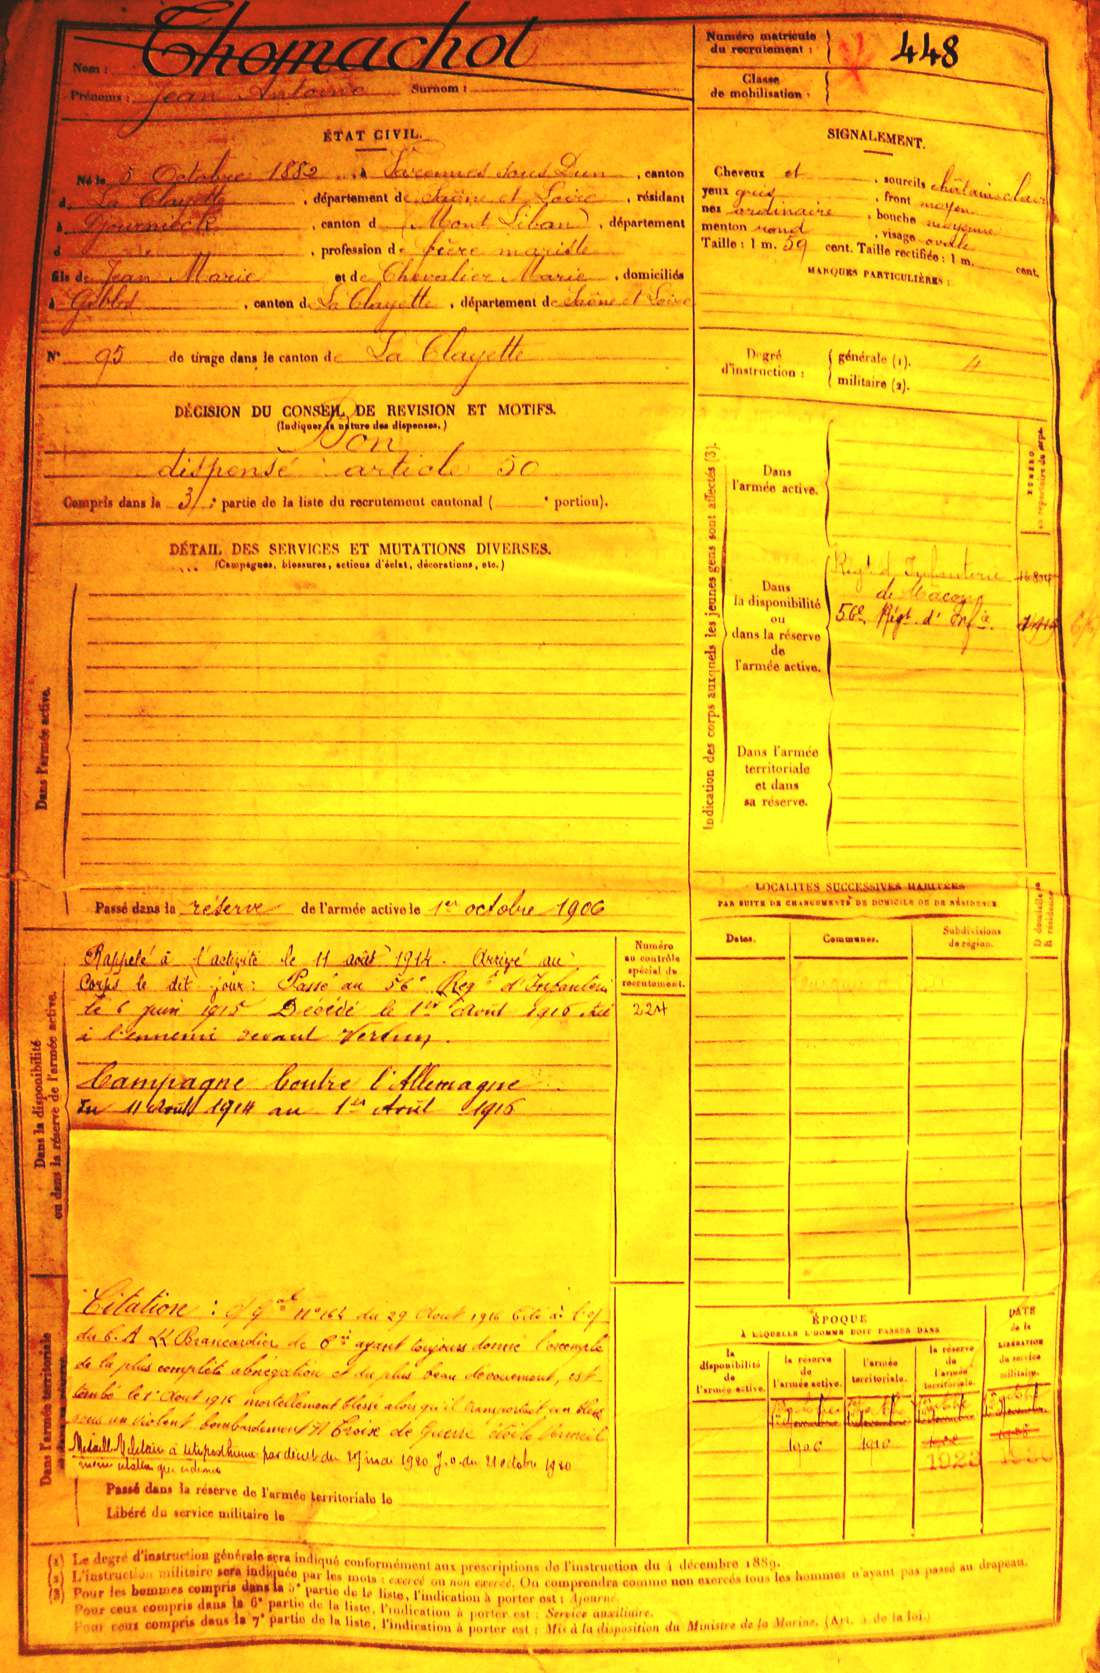 Nom : Thomachot
Prénoms : Jean Antoine Surnom :
Numéro matricule du recrutement : 448
Classe de mobilisation :
ÉTAT CIVIL.
Né le 5 Octobre 1882, à Varennes sous Dun, canton
d La Clayette, département de Saône et Loire, résidant
à Djournieck, canton d (Mont Liban), département
d , profession de frère mariste
fils de Jean Marie et de Chevalier Marie, domiciliés
à Gibles, canton de La Clayette, département de Saône et Loire
N° 95 de tirage dans le canton de La Clayette
DÉCISION DU CONSEIL DE REVISION ET MOTIFS.
(Indiquer la nature des dispenses.)
Bon
dispensé article 50
Compris dans la 3e partie de la liste du recrutement cantonal ( e portion).
SIGNALEMENT.
Cheveux et , sourcils châtain clair
yeux gris , front moyen
nez ordinaire , bouche moyenne
menton rond , visage ovale
Taille : 1 m. 59 cent. Taille rectifiée : 1 m. cent.
MARQUES PARTICULIÈRES :
Degré d'instruction :
générale (1).
militaire (2).
DÉTAIL DES SERVICES ET MUTATIONS DIVERSES.
(Campagnes, blessures, actions d'éclat, décorations, etc.)
Dans l'armée active.
Passé dans la réserve de l'armée active le 1er octobre 1906
Indication des corps auxquels les jeunes gens sont affectés (3).
NUMÉRO au répertoire du corps.
Dans
l'armée active.
Dans
la disponibilité
ou
dans la réserve
de
l'armée active.
Régt d'Infanterie
de Mâcon
56e Régt d'Infie
Dans l'armée
territoriale
et dans
sa réserve.
Dans la disponibilité
ou dans la réserve de l'armée active.
Rappelé à l'activité le 11 août 1914. Arrivé au
Corps le dit jour : Passé au 56e Régt d'Infanterie
le 6 juin 1915 Décédé le 1er Août 1916 tué
à l'ennemi devant Verdun.
Campagne Contre l'Allemagne
Du 11 Août 1914 au 1er Août 1916
Numéro
au contrôle
spécial du
recrutement.
224
LOCALITÉS SUCCESSIVES HABITÉES
PAR SUITE DE CHANGEMENTS DE DOMICILE OU DE RÉSIDENCE
Dates.
Communes.
Subdivisions de région.
D domicile
R résidence
Dans l'armée territoriale
Citation : n° 162 du 29 Août 1916 Cité à l'o/
du C. A Brancardier de ayant toujours donné l'exemple
de la plus complète abnégation et du plus beau dévouement, est
tombé le 1er Août 1916 mortellement blessé alors qu'il transportait un blessé
sous un violent bombardement Croix de Guerre étoile vermeil
Médaille Militaire à titre posthume par décret du 27 mai 1920 J.O. du 21 octobre 1920
même citation que ci-dessus
Passé dans la réserve de l'armée territoriale le
Libéré du service militaire le
ÉPOQUE
À LAQUELLE L'HOMME DOIT PASSER DANS
la disponibilité de l'armée active.
la réserve de l'armée active.
l'armée territoriale.
la réserve de l'armée territoriale.
DATE de la LIBÉRATION du service militaire.
1906 1910
1923
(1) Le degré d'instruction générale sera indiqué conformément aux prescriptions de l'instruction du 4 décembre 1889.
(2) L'instruction militaire sera indiquée par les mots : exercé ou non exercé. On comprendra comme non exercés tous les hommes n'ayant pas passé au drapeau.
(3) Pour les hommes compris dans la 5e partie de la liste, l'indication à porter est : Ajourné.
Pour ceux compris dans la 6e partie de la liste, l'indication à porter est : Service auxiliaire.
Pour ceux compris dans la 7e partie de la liste, l'indication à porter est : Mis à la disposition du Ministre de la Marine. (Art. 4 de la loi.)